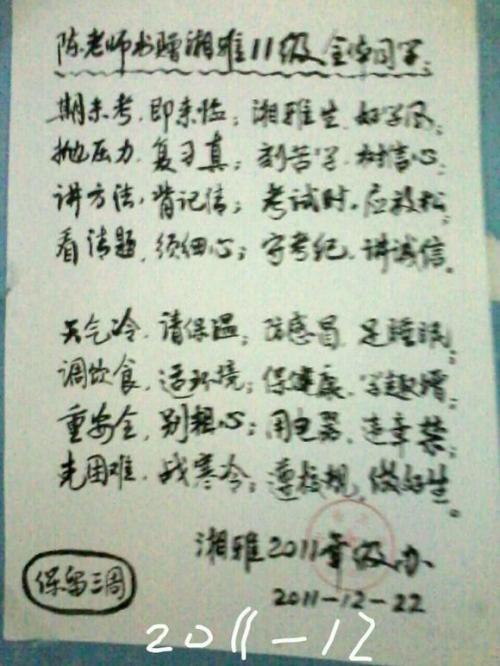 陈老师书赠湘雅11级全体同学:
期末考,即来临;湘雅生,好学风;
抛压力,复习真;刻苦学,树信心;
讲方法,背记清;考试时,应放松;
看清题,须细心;守考纪,讲诚信。
天气冷,请保温;防感冒,足睡眠;
调饮食,适环境;保健康,学趣增;
重安全,别粗心;用电器,违章禁;
克困难,战寒冷;遵校规,做好生。
湘雅2011年级办
2011-12-22
保留三周
2011-12